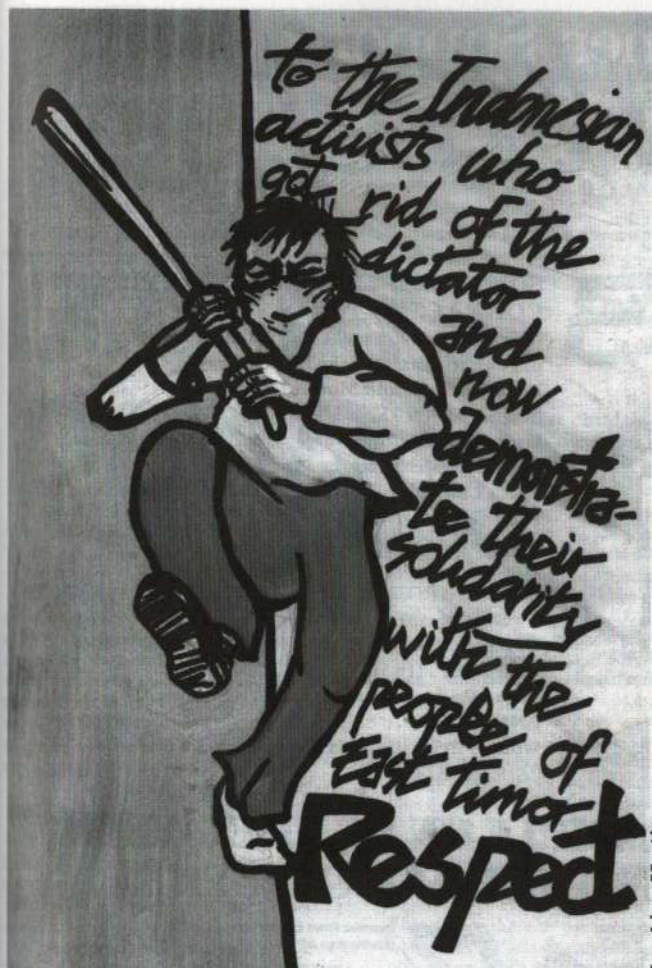 to the Indonesian
activists who
got rid of the
dictator
and
now
demonstra-
te their
solidarity
with the
people of
East Timor
Respect